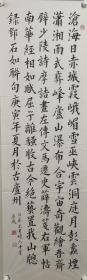 滄海日赤城霞峨嵋雪巫峽雲洞庭月彭蠡煙
瀟湘雨武彝峰廬山瀑布合宇宙奇觀繪吾齋
壁少陵詩摩詰畫左傳文馬遷史薛濤箋右軍帖
南華經相如賦屈子離騷收古今絕藝置我山牕
錄鄧石如聯句庚寅年夏月於古廬州